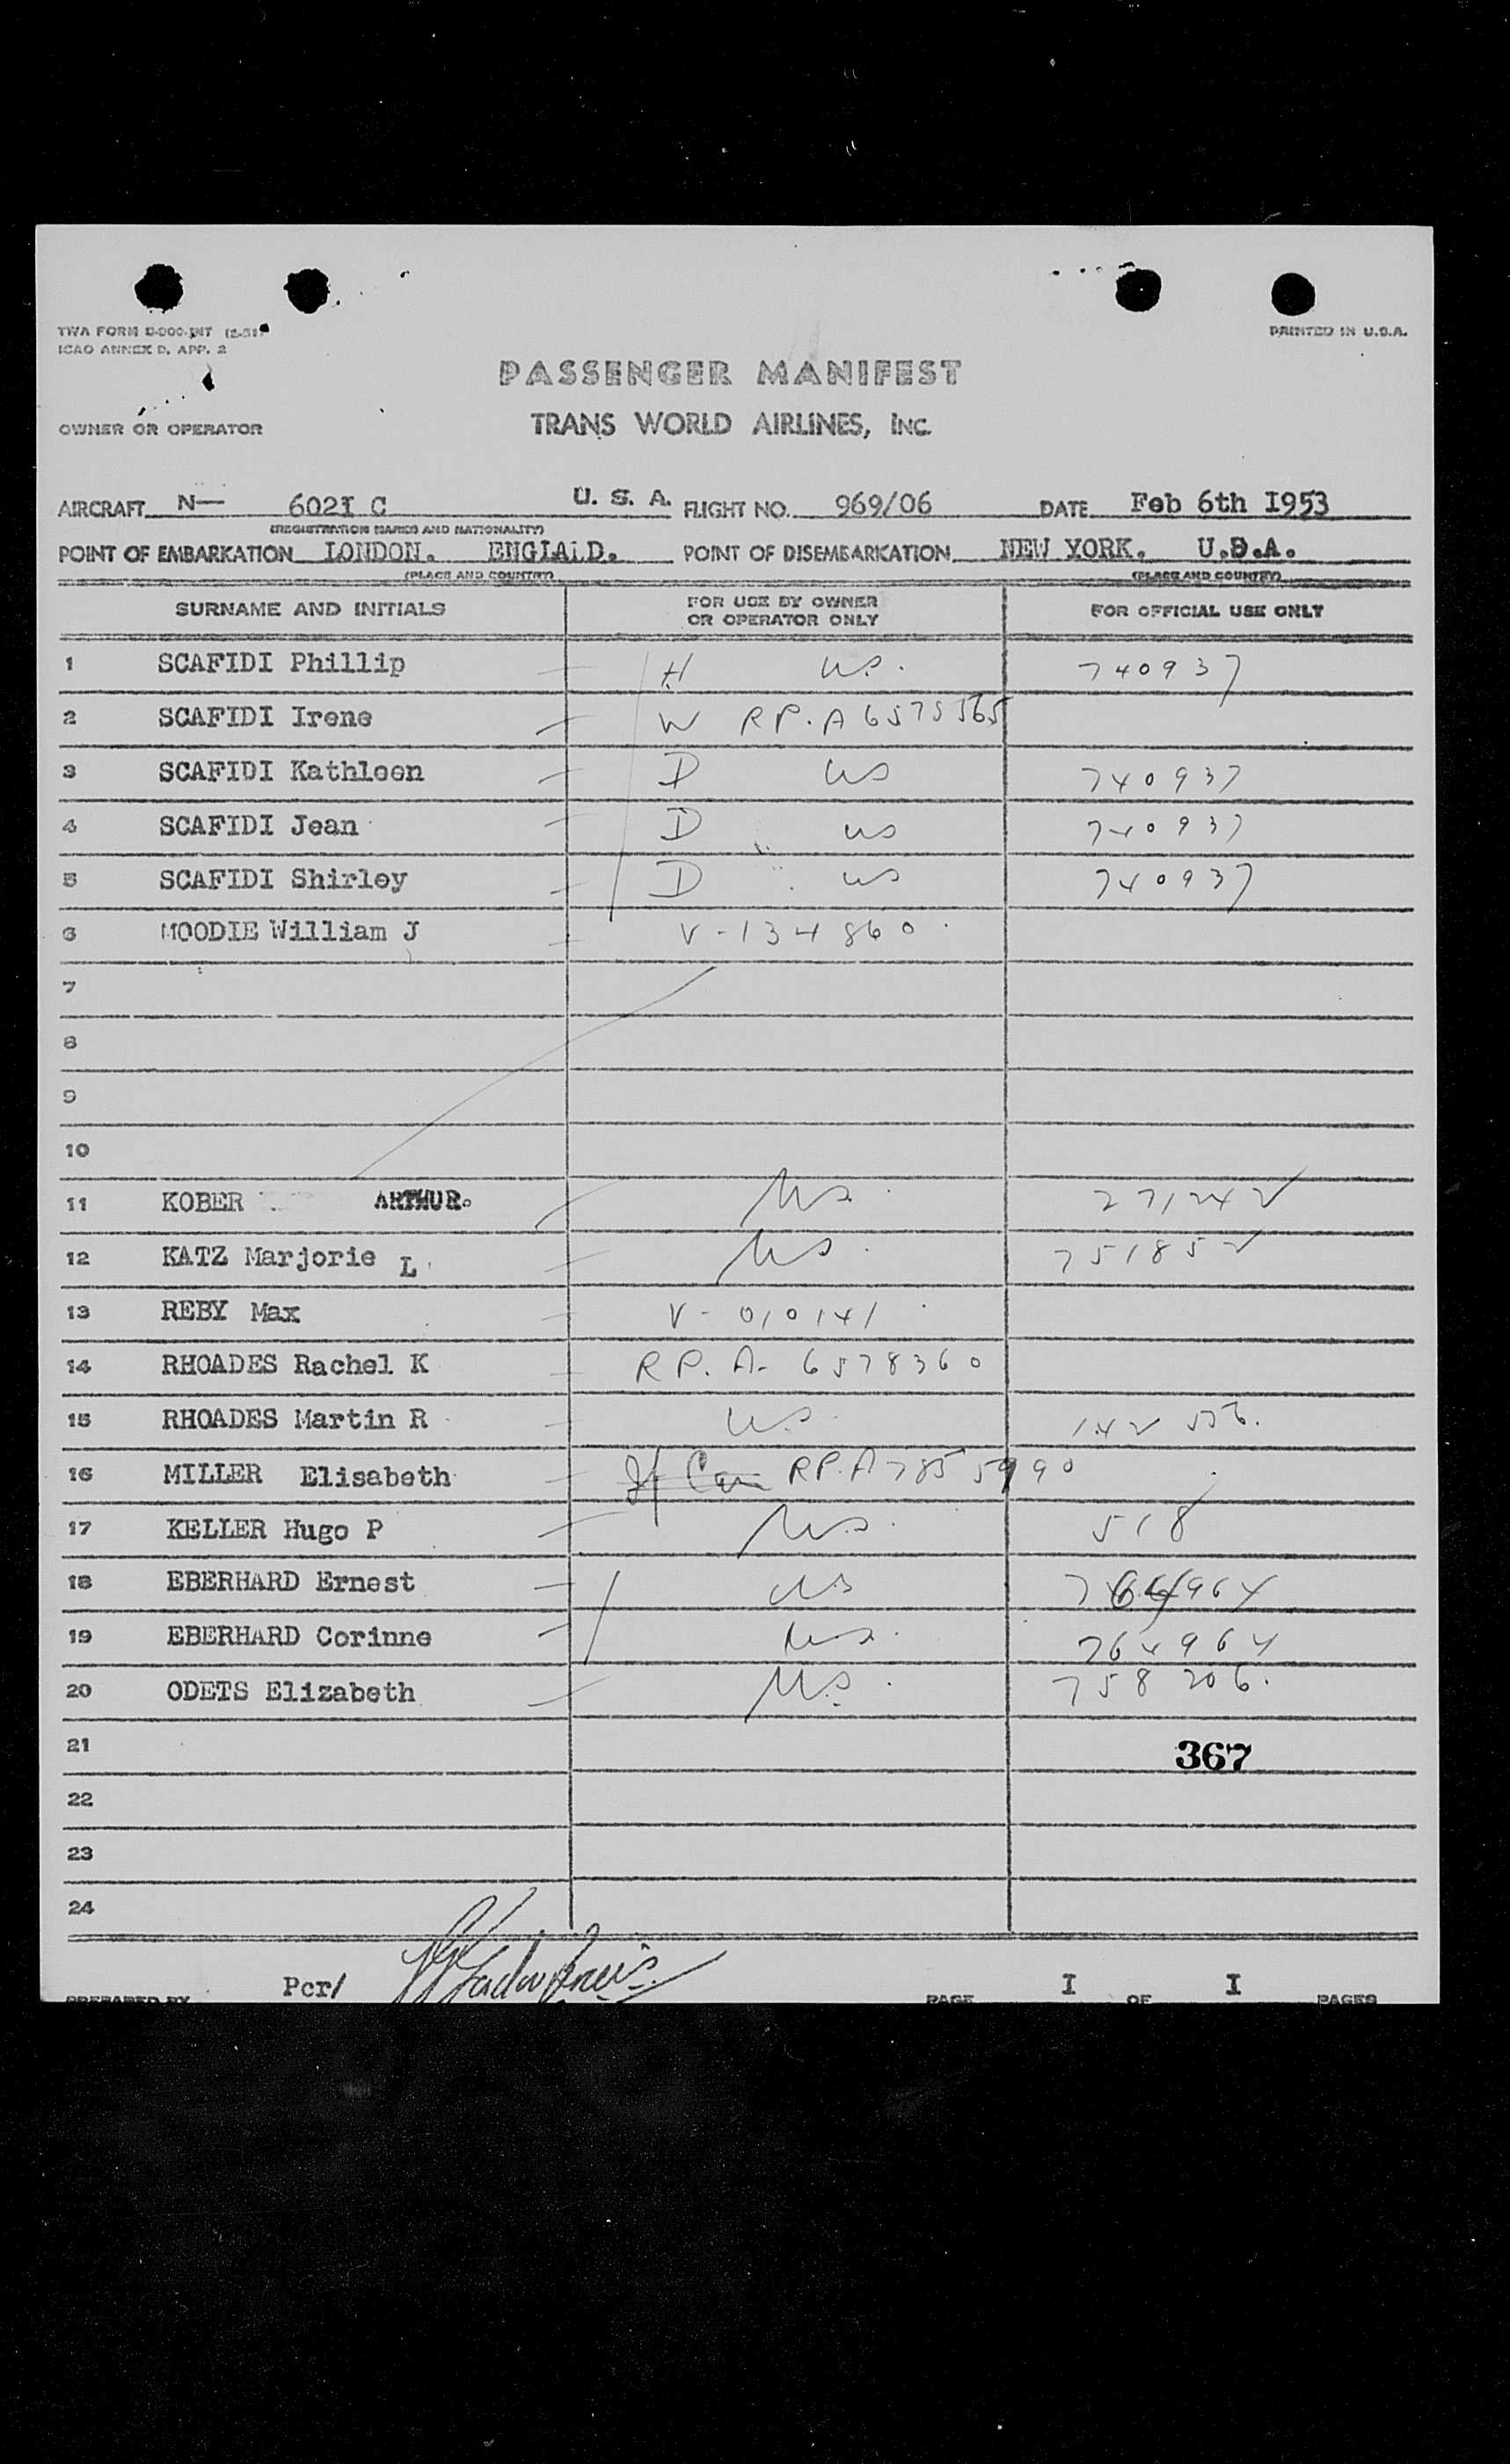 TWA FORM D-900-INT (2-51)
ICAO ANNEX D. APP. 2
PRINTED IN U.S.A.
PASSENGER MANIFEST
OWNER OR OPERATOR TRANS WORLD AIRLINES, INC.
AIRCRAFT N— 602I C U. S. A. FLIGHT NO. 969/06 DATE Feb 6th I953
(REGISTRATION MARKS AND NATIONALITY)
POINT OF EMBARKATION LONDON. ENGLALD. POINT OF DISEMBARKATION NEW YORK. U.S.A.
(PLACE AND COUNTRY) (PLACE AND COUNTRY)
SURNAME AND INITIALS FOR USE BY OWNER OR OPERATOR ONLY FOR OFFICIAL USE ONLY
1 SCAFIDI Phillip H US. 740937
2 SCAFIDI Irene W RP. A 6575565
3 SCAFIDI Kathleen D US 740937
4 SCAFIDI Jean D US 740937
5 SCAFIDI Shirley D US 740937
6 MOODIE William J V-134860
7
8
9
10
11 KOBER ARTHUR. US. 271242
12 KATZ Marjorie L US. 751852
13 REBY Max V-010141
14 RHOADES Rachel K RP. A- 6578360
15 RHOADES Martin R US. 142
16 MILLER Elisabeth RP. A7855990
17 KELLER Hugo P US. 518
18 EBERHARD Ernest US 764964
19 EBERHARD Corinne US. 764964
20 ODETS Elizabeth US. 758206.
21 367
22
23
24
PREPARED BY Per/ PAGE I OF I PAGES